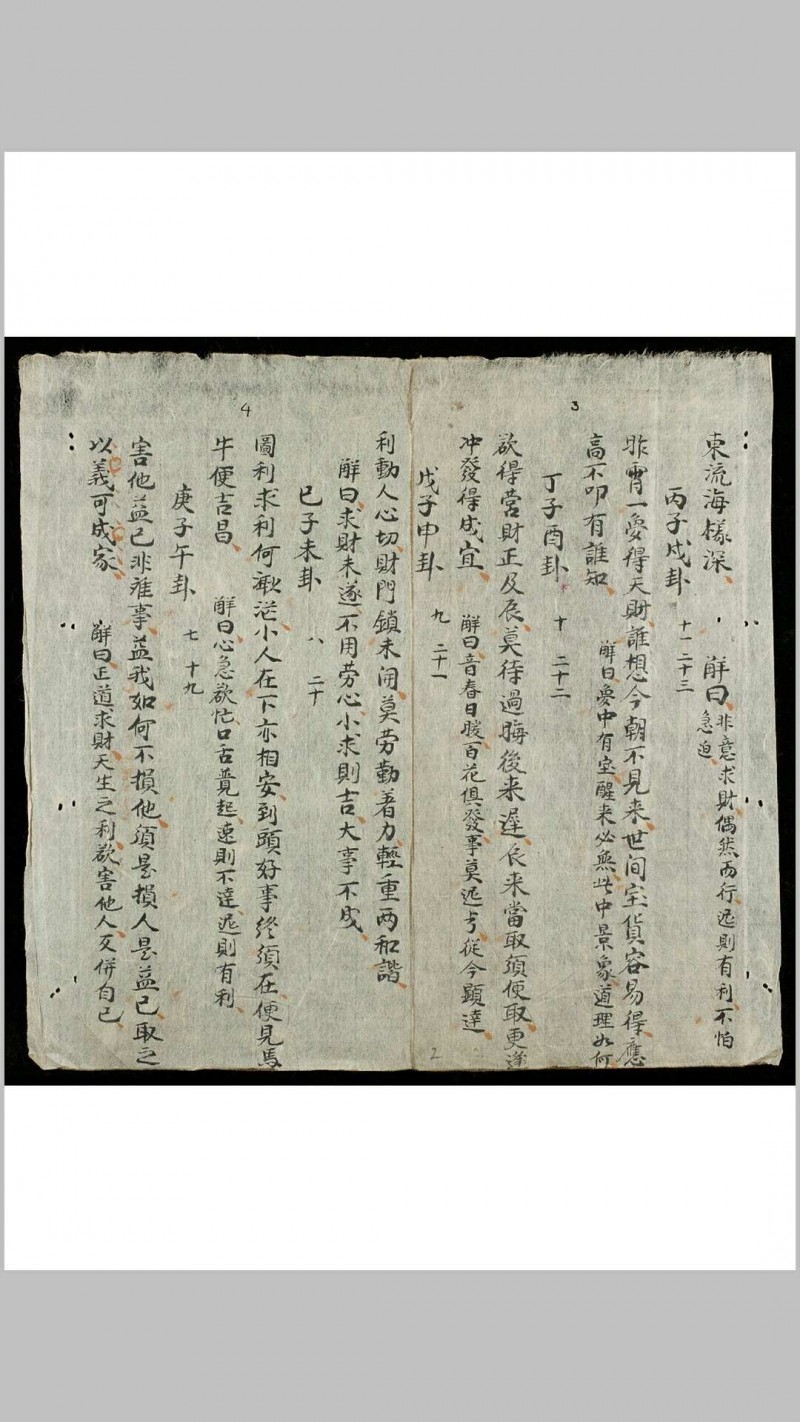 3
東流海樣深
解曰非意求財偶然而行迟則有利不怕
急迫
丙子戍卦 十一 二十三
昨霄一夢得天財誰想今朝不見来世间宝貨容易得應
高不叩有誰知 解曰夢中有宝醒来必無此中景象道理如何
丁子酉卦 十 二十二
欲得营財正及辰莫待過晦後来遅辰来當取須便取更逢
冲發得成宜 解曰音春日暖百花俱發事莫迟兮從今顕達
戊子申卦 九 二十一
2
4
利動人心切財門鎖未闭莫劳勤著力輕重两和諧
解曰求財未遂不用劳心小求則吉大事不成
已子未卦 八 二十
圖利求利何漱茫小人在下亦相安到頭好事終須在便見馬
牛便吉昌 解曰心急欲忙口舌竟起速則不達迟則有利
庚子午卦 七 十九
害他益己非难事益我如何不損他須是損人是益已取之
以義可成家 解曰正道求財天生之利欲害他人反併自已